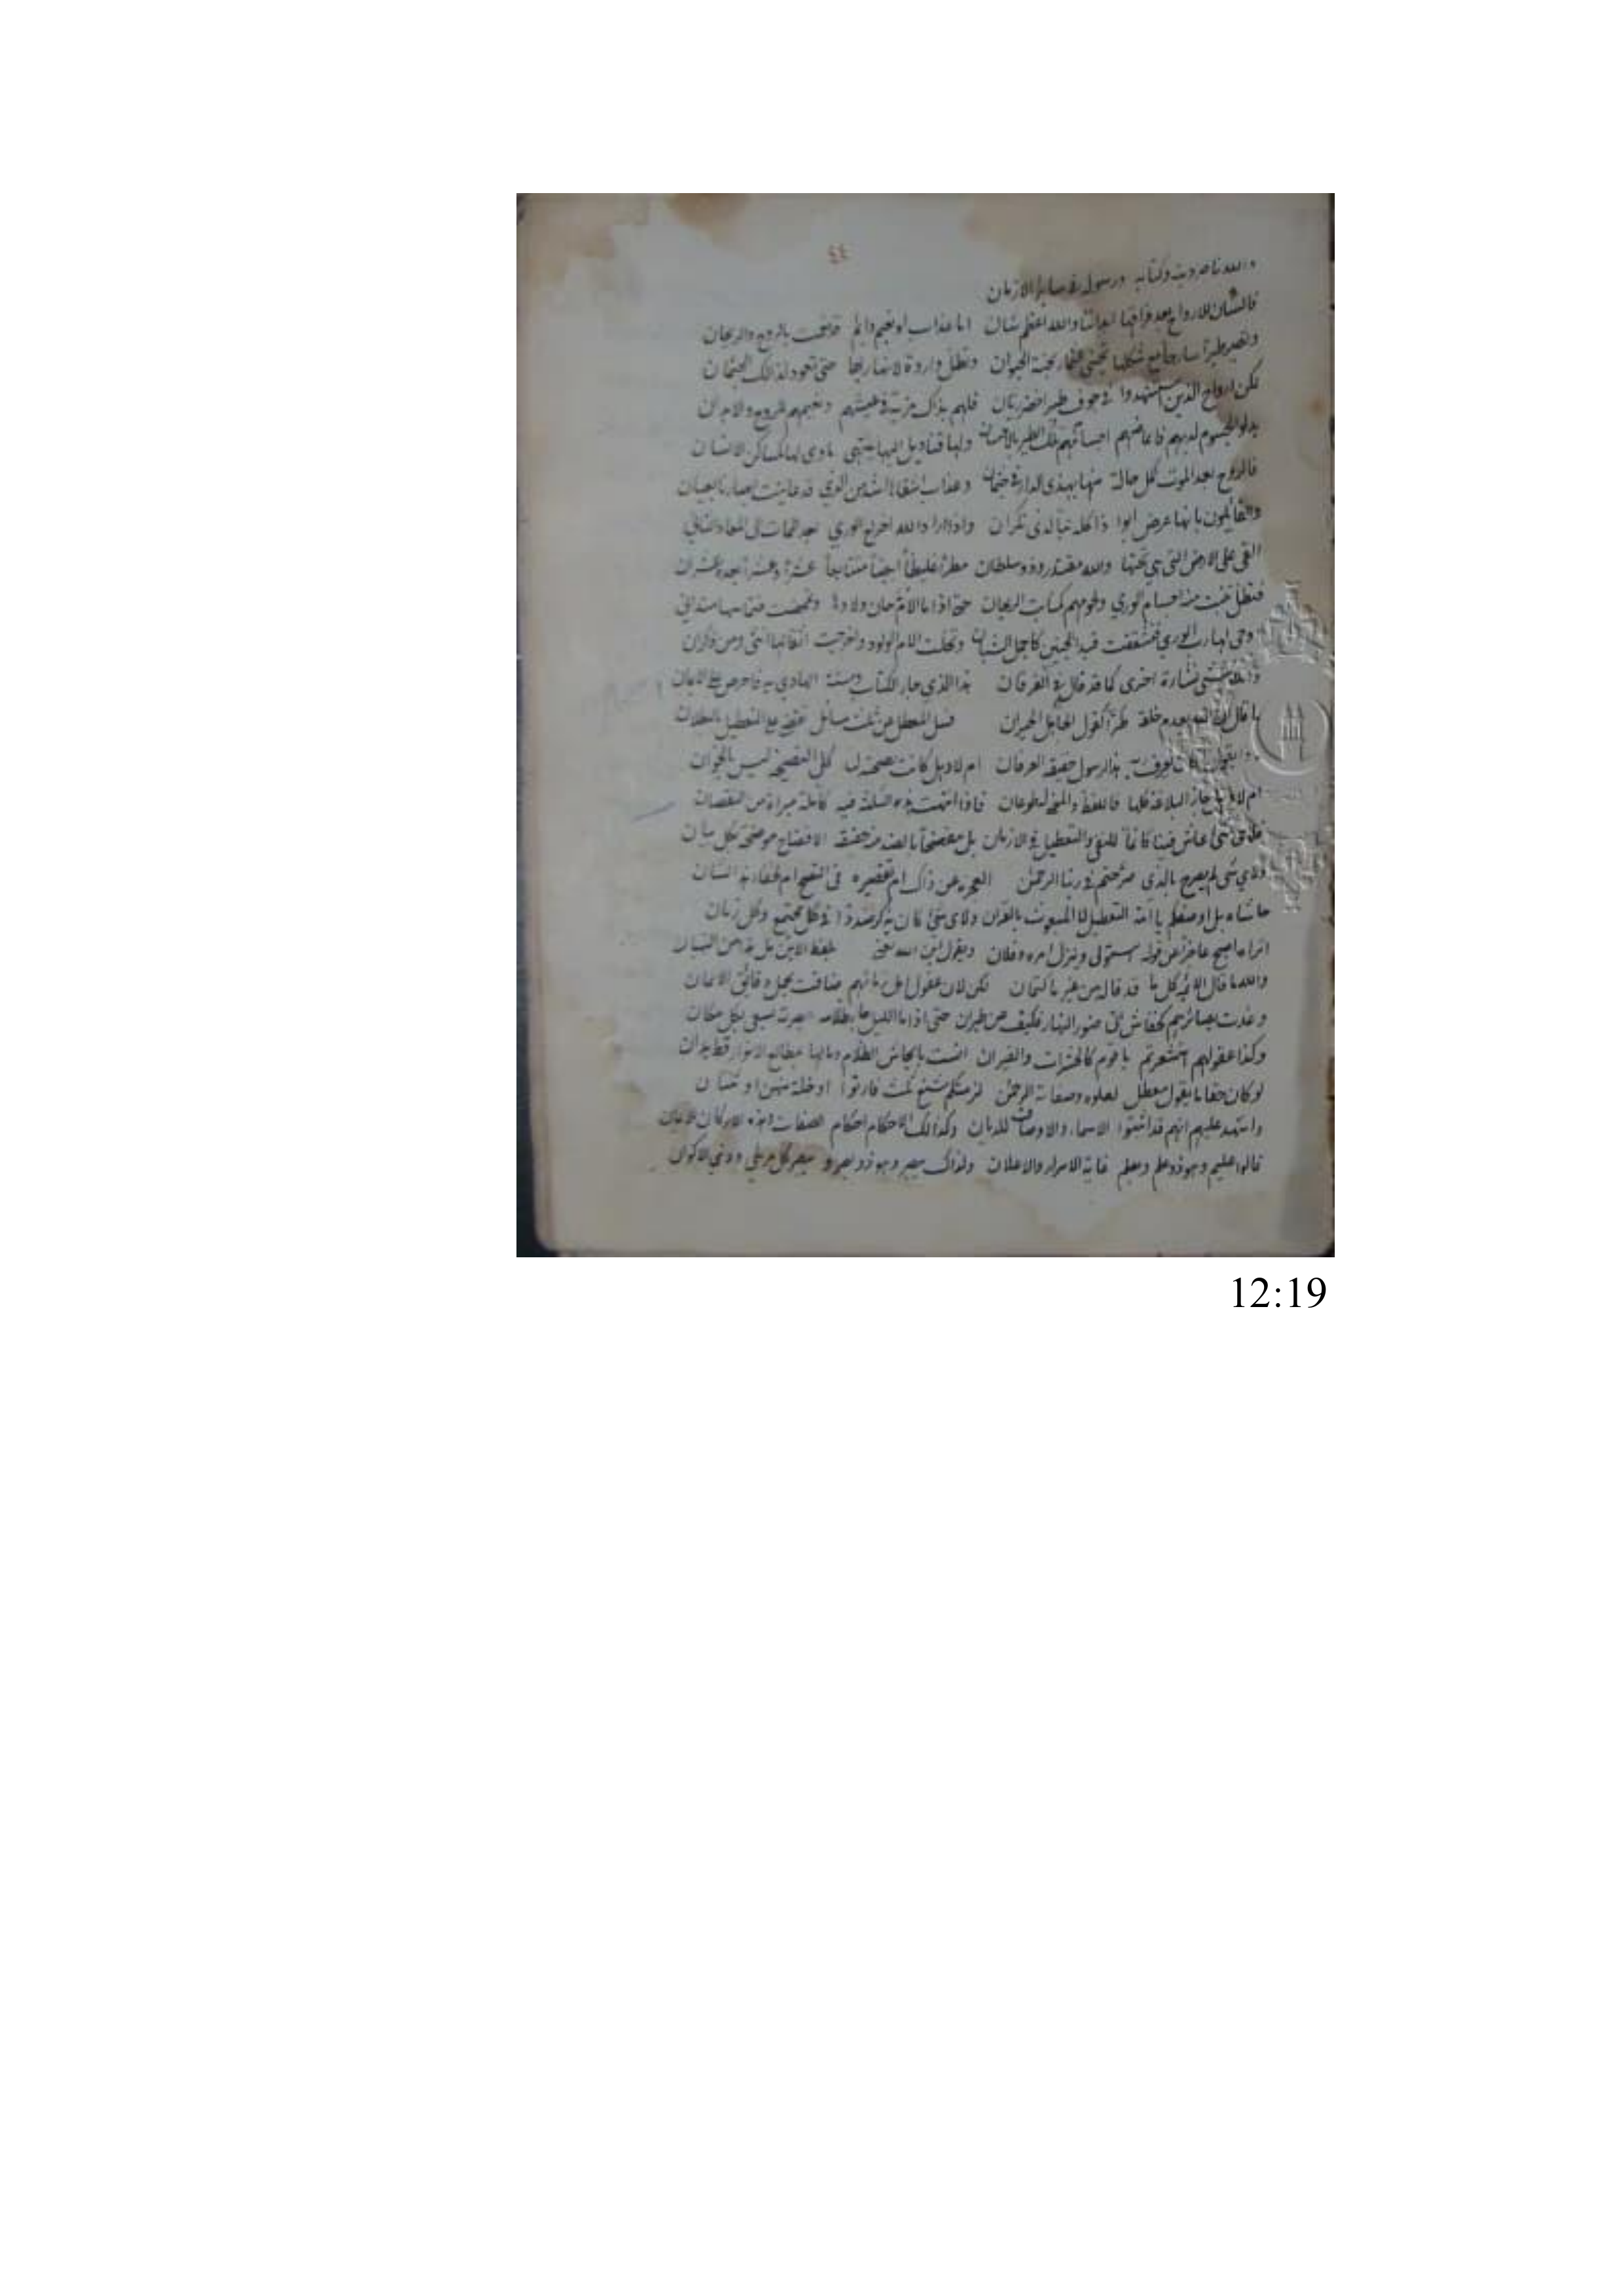 ٤٤
والله ناصر دينه وكتابه ورسوله في سائر الازمان
فالشان للارواح بعد فراقها ابداننا والله اعظم شان اما عذاب او نعيم دائم قد نعمت بالروح والريحان
وتصير طيرا سارحا مع شكلها تجني الثمار بجنة الحيوان وتظل واردة لانهار بها حتى تعود لذلك الجثمان
لكن ارواح الذين استشهدوا في جوف طير اخضر ريان فلهم بذاك مزية في عيشهم ونعيمهم للروح والابدان
بذلوا الجسوم لربهم فاعاضهم اجسام تلك الطير بالاحسان ولها قناديل اليها تنتهي ماوى لها كمساكن الانسان
فالروح بعد الموت اكمل حالة منها بهذي الدار في جثمان وعذاب اشقاها اشد من الذي قد عاينت ابصارنا بعيان
والقائلون بانها عرض ابوا ذا كله تبا لذي نكران واذا اراد الله اخراج الورى بعد الممات الى المعاد الثاني
القى على الارض التي هم تحتها والله مقتدر وذو سلطان مطرا غليظا ابيضا متتابعا عشرا وعشرا بعدها عشران
فتظل تنبت منه اجسام الورى ولحومهم كمنابت الريحان حتى اذا ما الام حان ولادها وتمخضت فنفاسها متدان
اوحى لها رب الورى فتشققت فبدا الجنين كاجمل الشبان وتخلت الام الولود واخرجت اثقالها انثى ومن ذكران
والله ينشئ نشاة اخرى كما قد قال في الفرقان هذا الذي جاء الكتاب وسنة الهادي به فاحرص على الايمان
ما قال ان الله يعدم خلقه طرا كقول الجاهل الحيران فسل المعطل عن ثلث مسائل تقضي على التعطيل بالبطلان
ماذا يقول اكان يعرف ربه هذا الرسول حقيقة العرفان ام لا وهل كانت نصيحته لنا كل النصيحة ليس بالخوان
ام لا وهل حاز البلاغة كلها فاللفظ والمعنى له طوعان فاذا انتهت هذه الثلثة فيه كاملة مبراة من النقصان
فلاي شئ عاش فينا كاتما للنفي والتعطيل في الازمان بل مفصحا بالضد منه حقيقة الافصاح موضحة بكل بيان
ولاي شئ لم يصرح بالذي صرحتم في ربنا الرحمن العجزه عن ذاك ام تقصيره في النصح ام لخفاء هذا الشان
حاشاه بل ذا وصفكم يا امة التعطيل لا المبعوث بالقران ولاي شئ كان يذكر ضد ذا في كل مجتمع وكل زمان
اتراه اصبح عاجزا عن قوله استولى وينزل امره وفلان ويقول اين الله يعني من بلفظ الاين هل هذا من التبيان
والله ما قال الائمة كل ما قد قاله من غير ما كتمان لكن لان عقول اهل زمانهم ضاقت بحمل دقائق الايمان
وغدت بصائرهم كخفاش اتى ضوء النهار فكف عن طيران حتى اذا ما الليل جاء ظلامه ابصرته يسعى بكل مكان
وكذا عقولكم لو استشعرتم يا قوم كالحشرات والفيران انست بايحاش الظلام وما لها بمطالع الانوار قط يدان
لو كان حقا ما يقول معطل لعلوه وصفاته الرحمن لزمتكم شنع ثلث فارتؤا او خلة منهن او ثنتان
واشهد عليهم انهم قد اثبتوا الاسماء والاوصاف للديان وكذالك الاحكام احكام الصفات وهذه الاركان للايمان
قالوا عليم وهو ذو علم ويعلم غاية الاسرار والاعلان وكذاك بصير وهو ذو بصر ويبصر كل مرئي وذي الاكوان
12:19